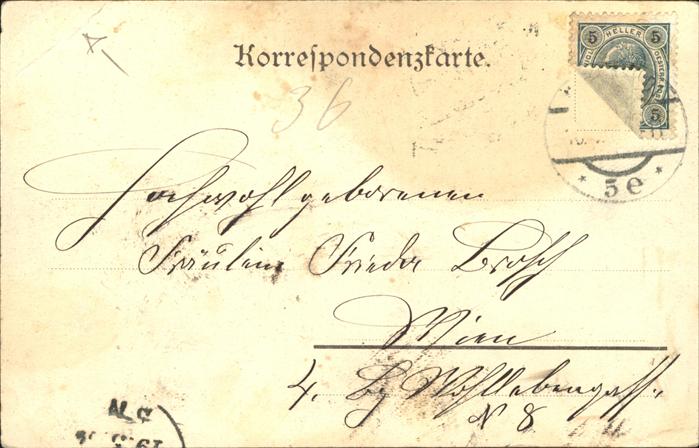 Korrespondenzkarte.
5 HELLER 5
5
36
5e
Hochwohlgeborenen
Fräulein Frieda Brosch
Wien
4. Bz Wohllebengasse
N 8